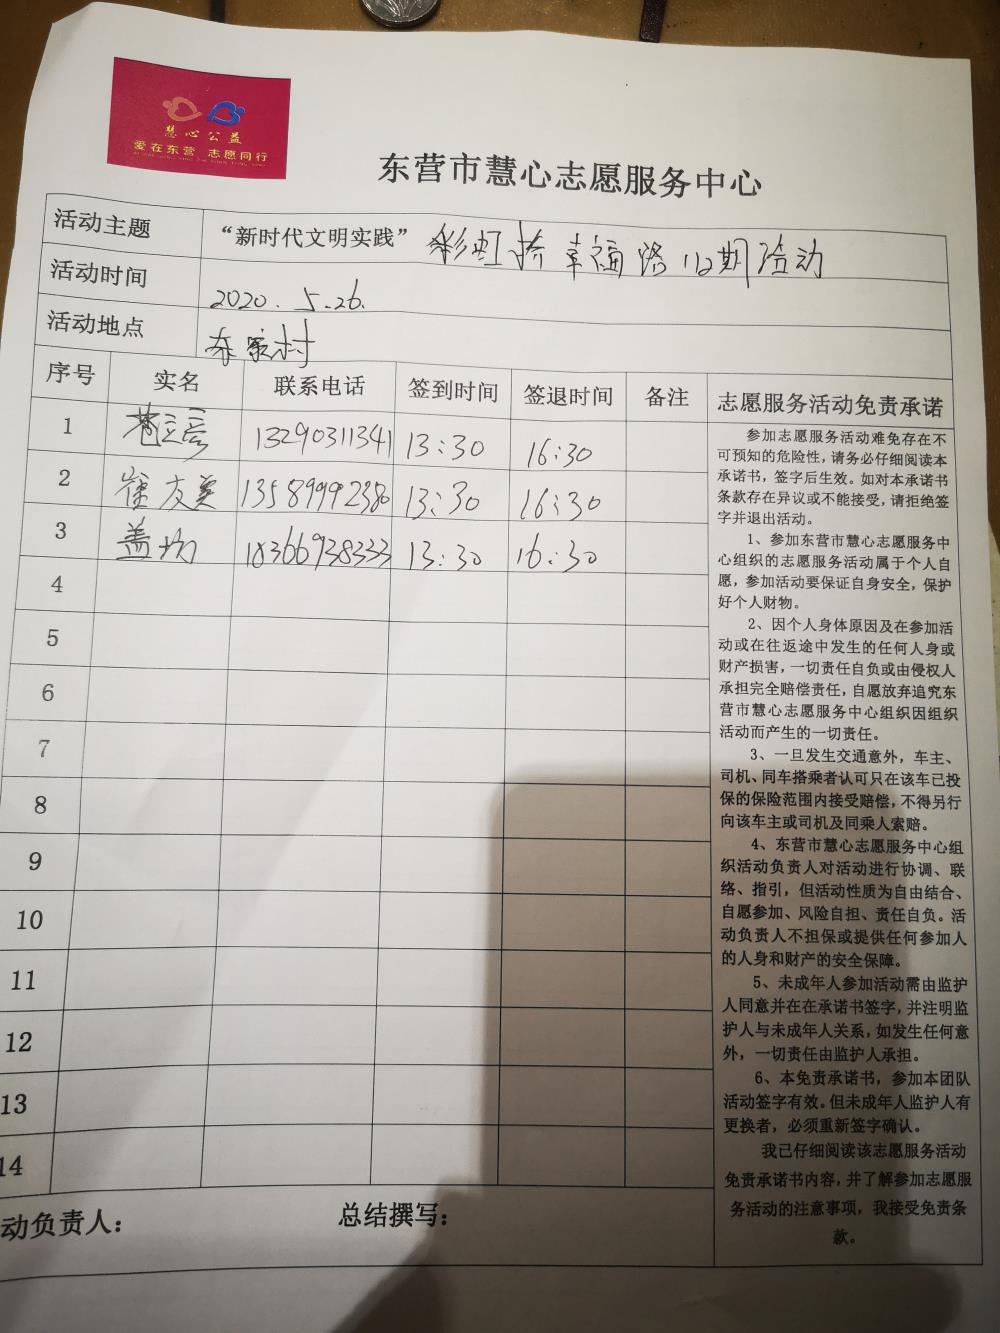 慧心公益
爱在东营 志愿同行
东营市慧心志愿服务中心
活动主题 “新时代文明实践” 彩虹桥幸福路112期活动
活动时间 2020.5.26.
活动地点 村
序号 实名 联系电话 签到时间 签退时间 备注 志愿服务活动免责承诺
1 13290311341 13:30 16:30
2 崔友美 13589992380 13:30 16:30
3 盖 18366938333 13:30 16:30
4
5
6
7
8
9
10
11
12
13
14
参加志愿服务活动难免存在不
可预知的危险性，请务必仔细阅读本
承诺书，签字后生效。如对本承诺书
条款存在异议或不能接受，请拒绝签
字并退出活动。
1、参加东营市慧心志愿服务中
心组织的志愿服务活动属于个人自
愿，参加活动要保证自身安全，保护
好个人财物。
2、因个人身体原因及在参加活
动或在往返途中发生的任何人身或
财产损害，一切责任自负或由侵权人
承担完全赔偿责任，自愿放弃追究东
营市慧心志愿服务中心组织因组织
活动而产生的一切责任。
3、一旦发生交通意外，车主、
司机、同车搭乘者认可只在该车已投
保的保险范围内接受赔偿，不得另行
向该车主或司机及同乘人索赔。
4、东营市慧心志愿服务中心组
织活动负责人对活动进行协调、联
络、指引，但活动性质为自由结合、
自愿参加、风险自担、责任自负。活
动负责人不担保或提供任何参加人
的人身和财产的安全保障。
5、未成年人参加活动需由监护
人同意并在在承诺书签字，并注明监
护人与未成年人关系，如发生任何意
外，一切责任由监护人承担。
6、本免责承诺书，参加本团队
活动签字有效。但未成年人监护人有
更换者，必须重新签字确认。
我已仔细阅读该志愿服务活动
免责承诺书内容，并了解参加志愿服
务活动的注意事项，我接受免责条
款。
动负责人： 总结撰写：